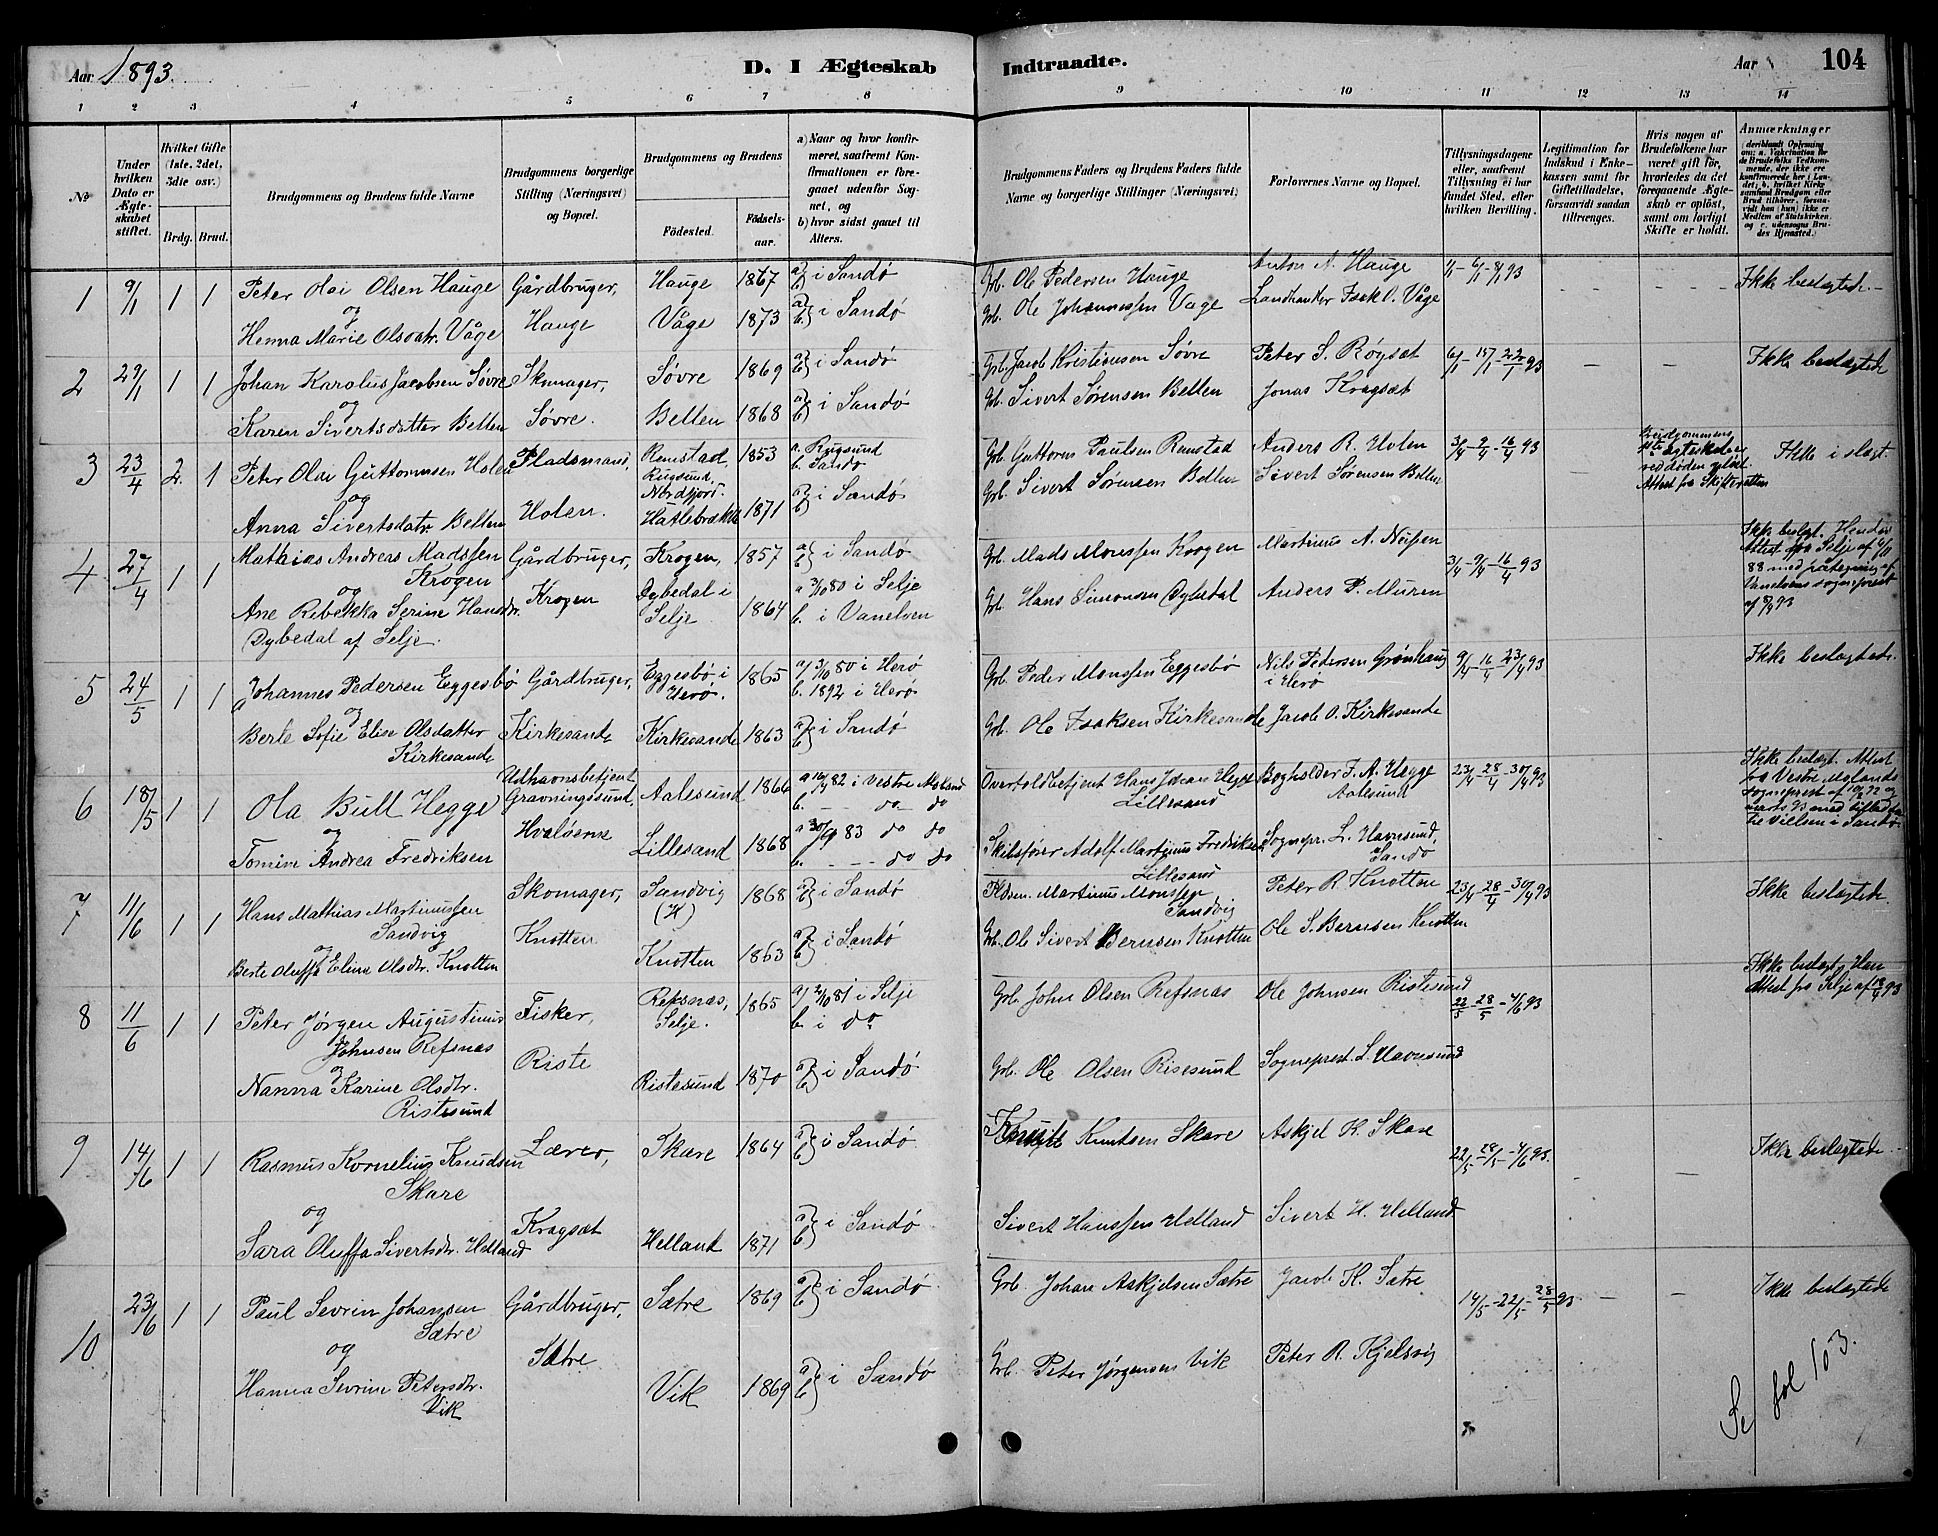 Aar 1893.
D. I Ægteskab Indtraadte.
Aar
104
1 2 3 4 5 6 7 8 9 10 11 12 13 14
№
Under hvilken Dato er Ægteskabet stiftet.
Hvilket Gifte (1ste, 2det, 3die osv.)
Brdg. Brud.
Brudgommens og Brudens fulde Navne
Brudgommens borgerlige Stilling (Næringsvei) og Bopæl.
Brudgommens og Brudens
Födested.
Födselsaar.
a) Naar og hvor konfirmeret, saafremt Konfirmationen er foregaaet udenfor Sognet, og
b) hvor sidst gaaet til Alters.
Brudgommens Faders og Brudens Faders fulde Navne og borgerlige Stillinger (Næringsvei)
Forlovernes Navne og Bopæl.
Tillysningsdagene eller, saafremt Tillysning ei har fundet Sted, efter hvilken Bevilling.
Legitimation for Indskud i Enkekassen samt for Giftetilladelse, forsaavidt saadan tiltrænges.
Hvis nogen af Brudefolkene har været gift för, hvorledes da det foregaaende Ægteskab er oplöst, samt om lovligt Skifte er holdt.
Anmærkninger (deriblandt Oplysning om: a. Vakcination för de Brudefolks Vedkommende, der ikke ere konfirmerede her i Landet; b. hvilket Kirkesamfund Brudgom eller Brud tilhörer, forsaavidt han (hun) ikke er Medlem af Statskirken, og c. udensogns Brudes Hjemsted.)
1 9/1 1 1 Peter Olai Olsen Hauge Gårdbruger, Hauge 1867 a) b) i Sandö Grb. Ole Pedersen Hauge Anton A. Hauge 1/1 - 6/1 - 8/1 93 Ikke beslægtede.
og Hauge
Henna Marie Olsdatr. Våge Våge 1873 a) b) i Sandö Grb. Ole Johannessen Vage Landhandler Isak O. Våge
2 29/1 1 1 Johan Karolus Jacobsen Søvre Skomager, Søvre 1869 a) b) i Sandö Grb. Jacob Kristensen Søvre Peter S. Røysæt 6/1 - 15/1 - 22/1 93 Ikke beslægtede
og Søvre.
Karen Sivertsdatter Belten Belten 1868 a) b) i Sandö Grb. Sivert Sørensen Belten Jonas Kragsæt
3 23/4 2. 1 Peter Olai Guttormsen Holen Pladsmand, Remstad, Rugsund, Nordfjord. 1853 a. Rugsund b. Sandö Grb. Guttorm Paulsen Remstad Anders R. Holen 3/4 - 9/4 - 16/4 93 Brudgommens 1ste ægteskab er ved døden opløst. Attest fra Skifteretten Ikke i slægt.
og Holen.
Anna Sivertsdatr. Belten Hatlebrække 1871 a) b) i Sandö Grb. Sivert Sørensen Belten Sivert Sørensen Belten
4 27/4 1 1 Mathias Andreas Madssen Krogen Gårdbruger, Krogen, 1857 a) b) i Sandö Grb. Mads Monssen Krogen Martinus A. 3/4 - 9/4 - 16/4 93 Ikke beslægt. Hendes Attest fra Selje af 88 med påtegning af Vanelvens sogneprest af 8/4 93
og Krogen
Ane Rebekka Serine Hansdtr. Dybedal i Selje 1864 a 3/10 80 i Selje b. i Vanelven Grb. Hans Simonsen Dybedal Anders P. Muren
Dybedal af Selje.
5 24/5 1 1 Johannes Pedersen Eggesbö Gårdbruger, Eggesbö i Herö. 1865 a) 3/10 80 i Herö b. 1892 i Herö Grb. Peder Monssen Eggesbö Nils Pedersen Grønhaug i Herø 9/4 - 16/4 - 23/4 93 Ikke beslægtede.
og Kirkesande
Berte Sofie Elise Olsdatter Kirkesande Kirkesande 1863 a) b) i Sandö Grb. Ole Isaksen Kirkesande Jacob O. Kirkesande
6 18/5 1 1 Ola Bull Hegge Udhavnsbetjent Gravningssund, Aalesund 1866 a 82 i Vestre Moland b. — do do Overtoldbetjent Hans Johan Hegge Lillesand Bogholder F. A. Hegge Aalesund 23/4 - 28/4 - 30/4 93 Ikke beslægt. Attest fra Vestre Molands sogneprest
og Hvaløerne
Tomine Andrea Fredriksen Lillesand 1868 a 83 do do b. — — do do Skibsfører Adolf Martinius Fredriksen Lillesand Sognepr. L. Havnsund, Sandö
7 11/6 1 1 Hans Mathias Martinussen Sandvig Skomager, Sandvig (H) 1868 a) b) i Sandö Pldsm. Martinus Monssen Sandvig Peter R. Knotten 23/4 - 28/4 - 30/4 93 Ikke beslægtede.
og Knotten
Berte Oluffa Eline Olsdtr. Knotten Knotten 1863 a) b) i Sandö Grb. Ole Sivert Berntsen Knotten Ole S. Berntsen Knotten
8 11/6 1 1 Peter Jørgen Augustinus Johnsen Refsnæs Fisker, Refsnæs, Selje. 1865 a) 2/10 81 i Selje b. i do. Grb. John Olsen Refsnæs Ole Johnsen Ristesund 22/5 - 28/5 - 4/6 93 Ikke beslægt. Han Attest fra Selje af
og Riste
Nanna Karine Olsdtr. Ristesund Ristesund 1870 a) b) i Sandö Grb. Ole Olsen Risesund Sogneprest. L. Havnesund
9 14/6 1 1 Rasmus Kornelius Knudsen Skare Lærer, Skare 1864 a) b) i Sandö Knut Knutsen Skare Askjel H. Skare 22/5 - 28/5 - 4/6 93. Ikke beslægtede.
og Kragsæt
Sara Oluffa Sivertsdtr. Helland Helland 1871 a) b) i Sandö Sivert Hanssen Helland Sivert H. Helland
10 23/6 1 1 Paul Sevrin Johansen Sætre Gårdbruger, Sætre 1869 a) b) i Sandö Grb. Johan Askjelsen Sætre Jacob H. Sætre 14/5 - 22/5 - 28/5 93 Ikke beslægtede
og Sætre
Hanna Sevrine Petersdtr. Vik Vik 1869 a) b) i Sandö Grb. Peter Jørgensen Vik Peter R. Kjelsvig
Se fol 103.